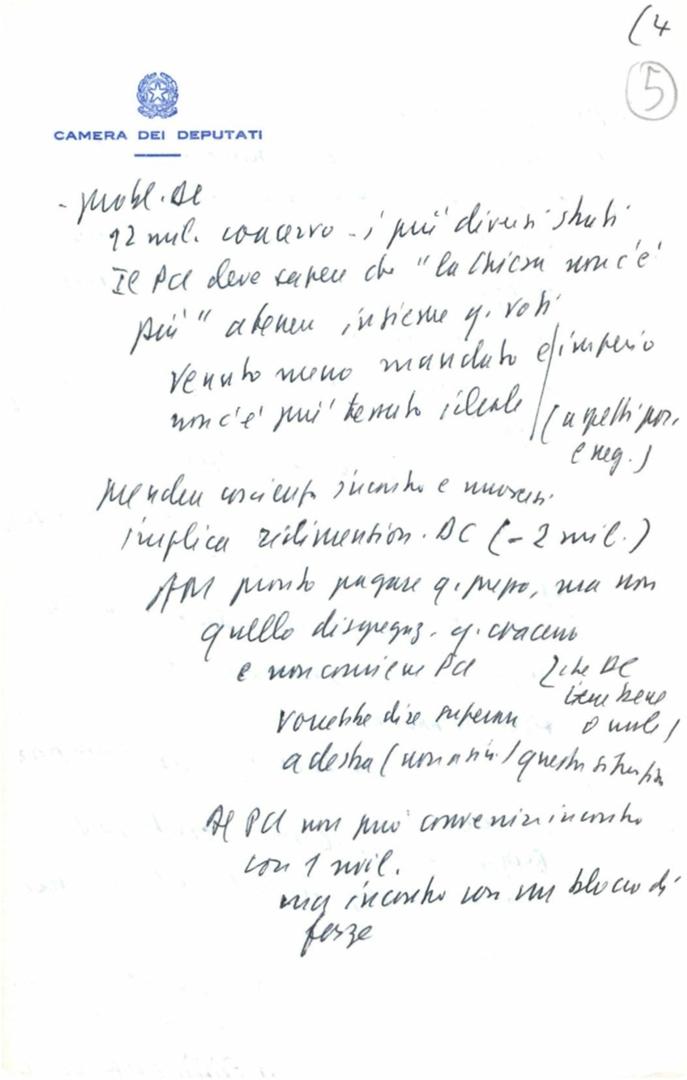 (4
5
CAMERA DEI DEPUTATI
- probl. DC
12 mil. concervo - i più diversi strati
Il PCI deve sapere che "la Chiesa non c'è
più" a tenere insieme q. voti
venuto meno mandato e imperio
non c'è più tessuto ideale (aspetti pos.
e neg.)
prendere coscienza incontro e muoversi
implica ridimention. DC (- 2 mil.)
AM pronto pagare q. prezzo, ma non
quello disgregaz. q.
e non conviene PCI (che DC
tiene bene
o male)
vorrebbe dire
a destra (non a sin.) questa situazion
Al PCI non può convenire incontro
con 1 mil.
ma incontro con un blocco di
forze